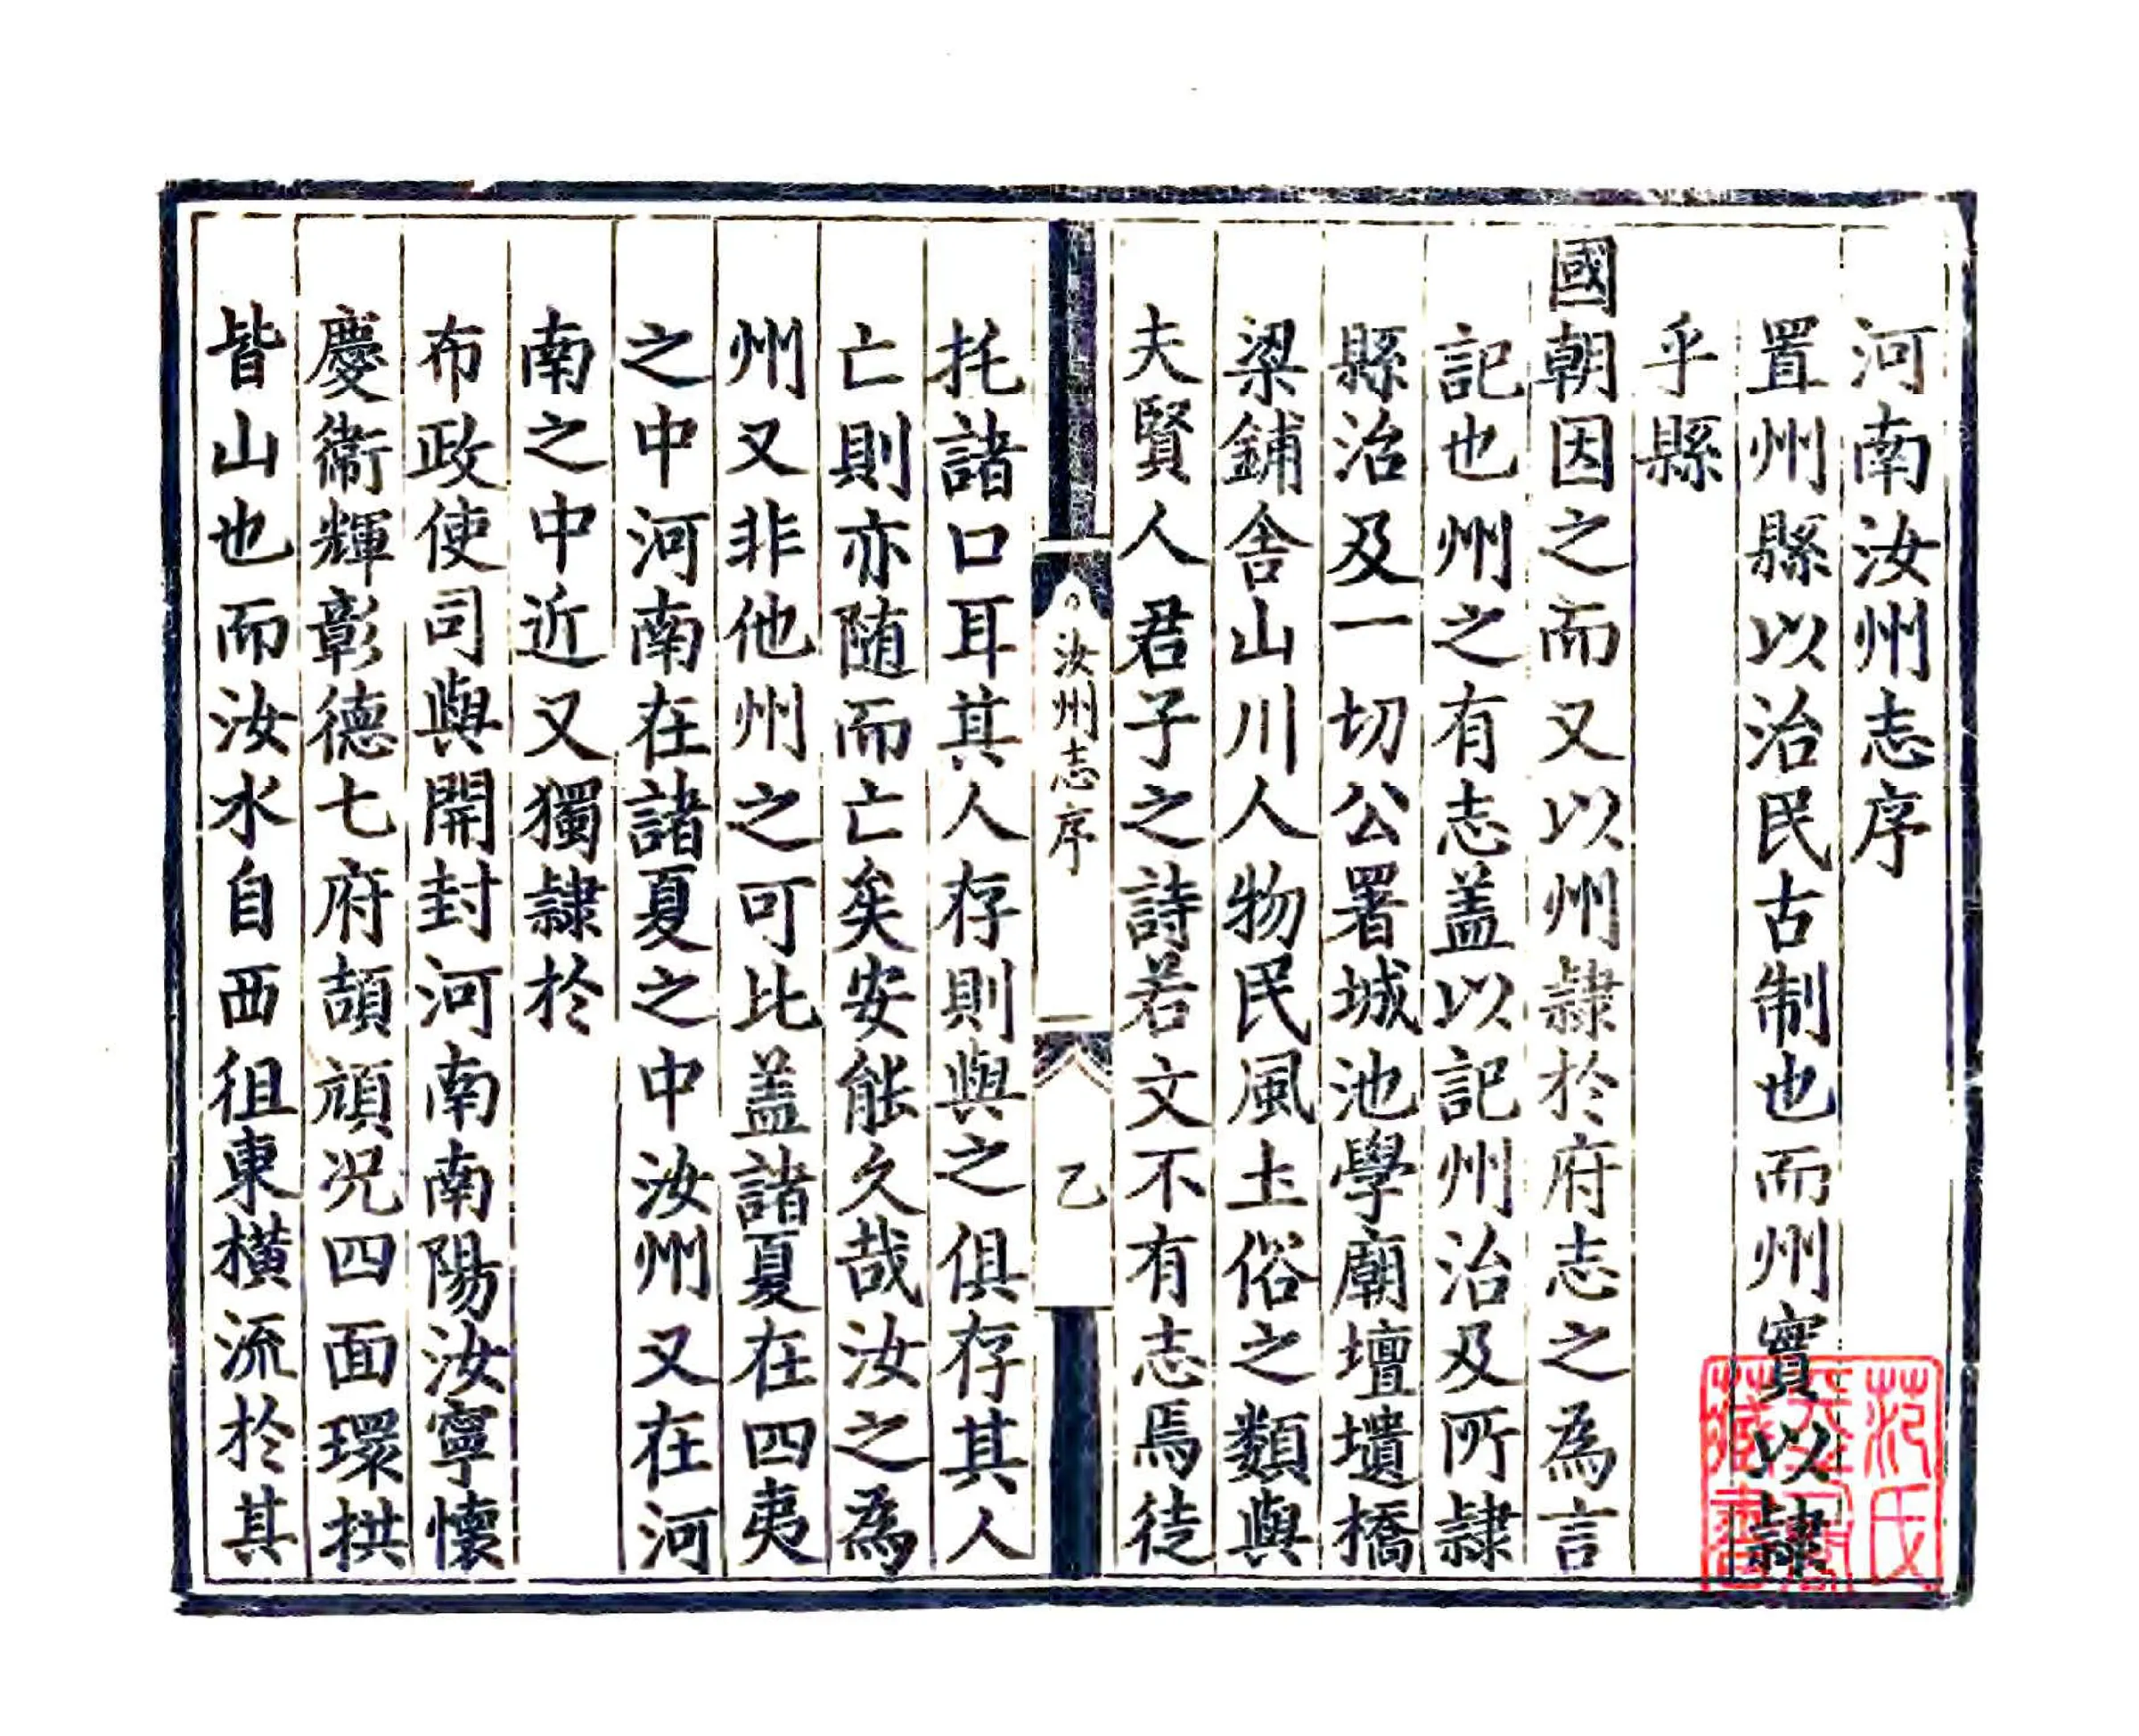 河南汝州志序
置州縣以治民古制也而州實以隸
乎縣
國朝因之而又以州隸於府志之為言
記也州之有志盖以記州治及所隸
縣治及一切公署城池學廟壇壝橋
梁鋪舍山川人物民風土俗之類與
夫賢人君子之詩若文不有志焉徒
汝州志序
乙
托諸口耳其人存則與之俱存其人
亡則亦随而亡矣安能久哉汝之為
州又非他州之可比盖諸夏在四夷
之中河南在諸夏之中汝州又在河
南之中近又獨隸於
布政使司與開封河南南陽汝寧懷
慶衛輝彰德七府頡頏况四面環拱
皆山也而汝水自西徂東橫流於其
范氏天一閣藏書